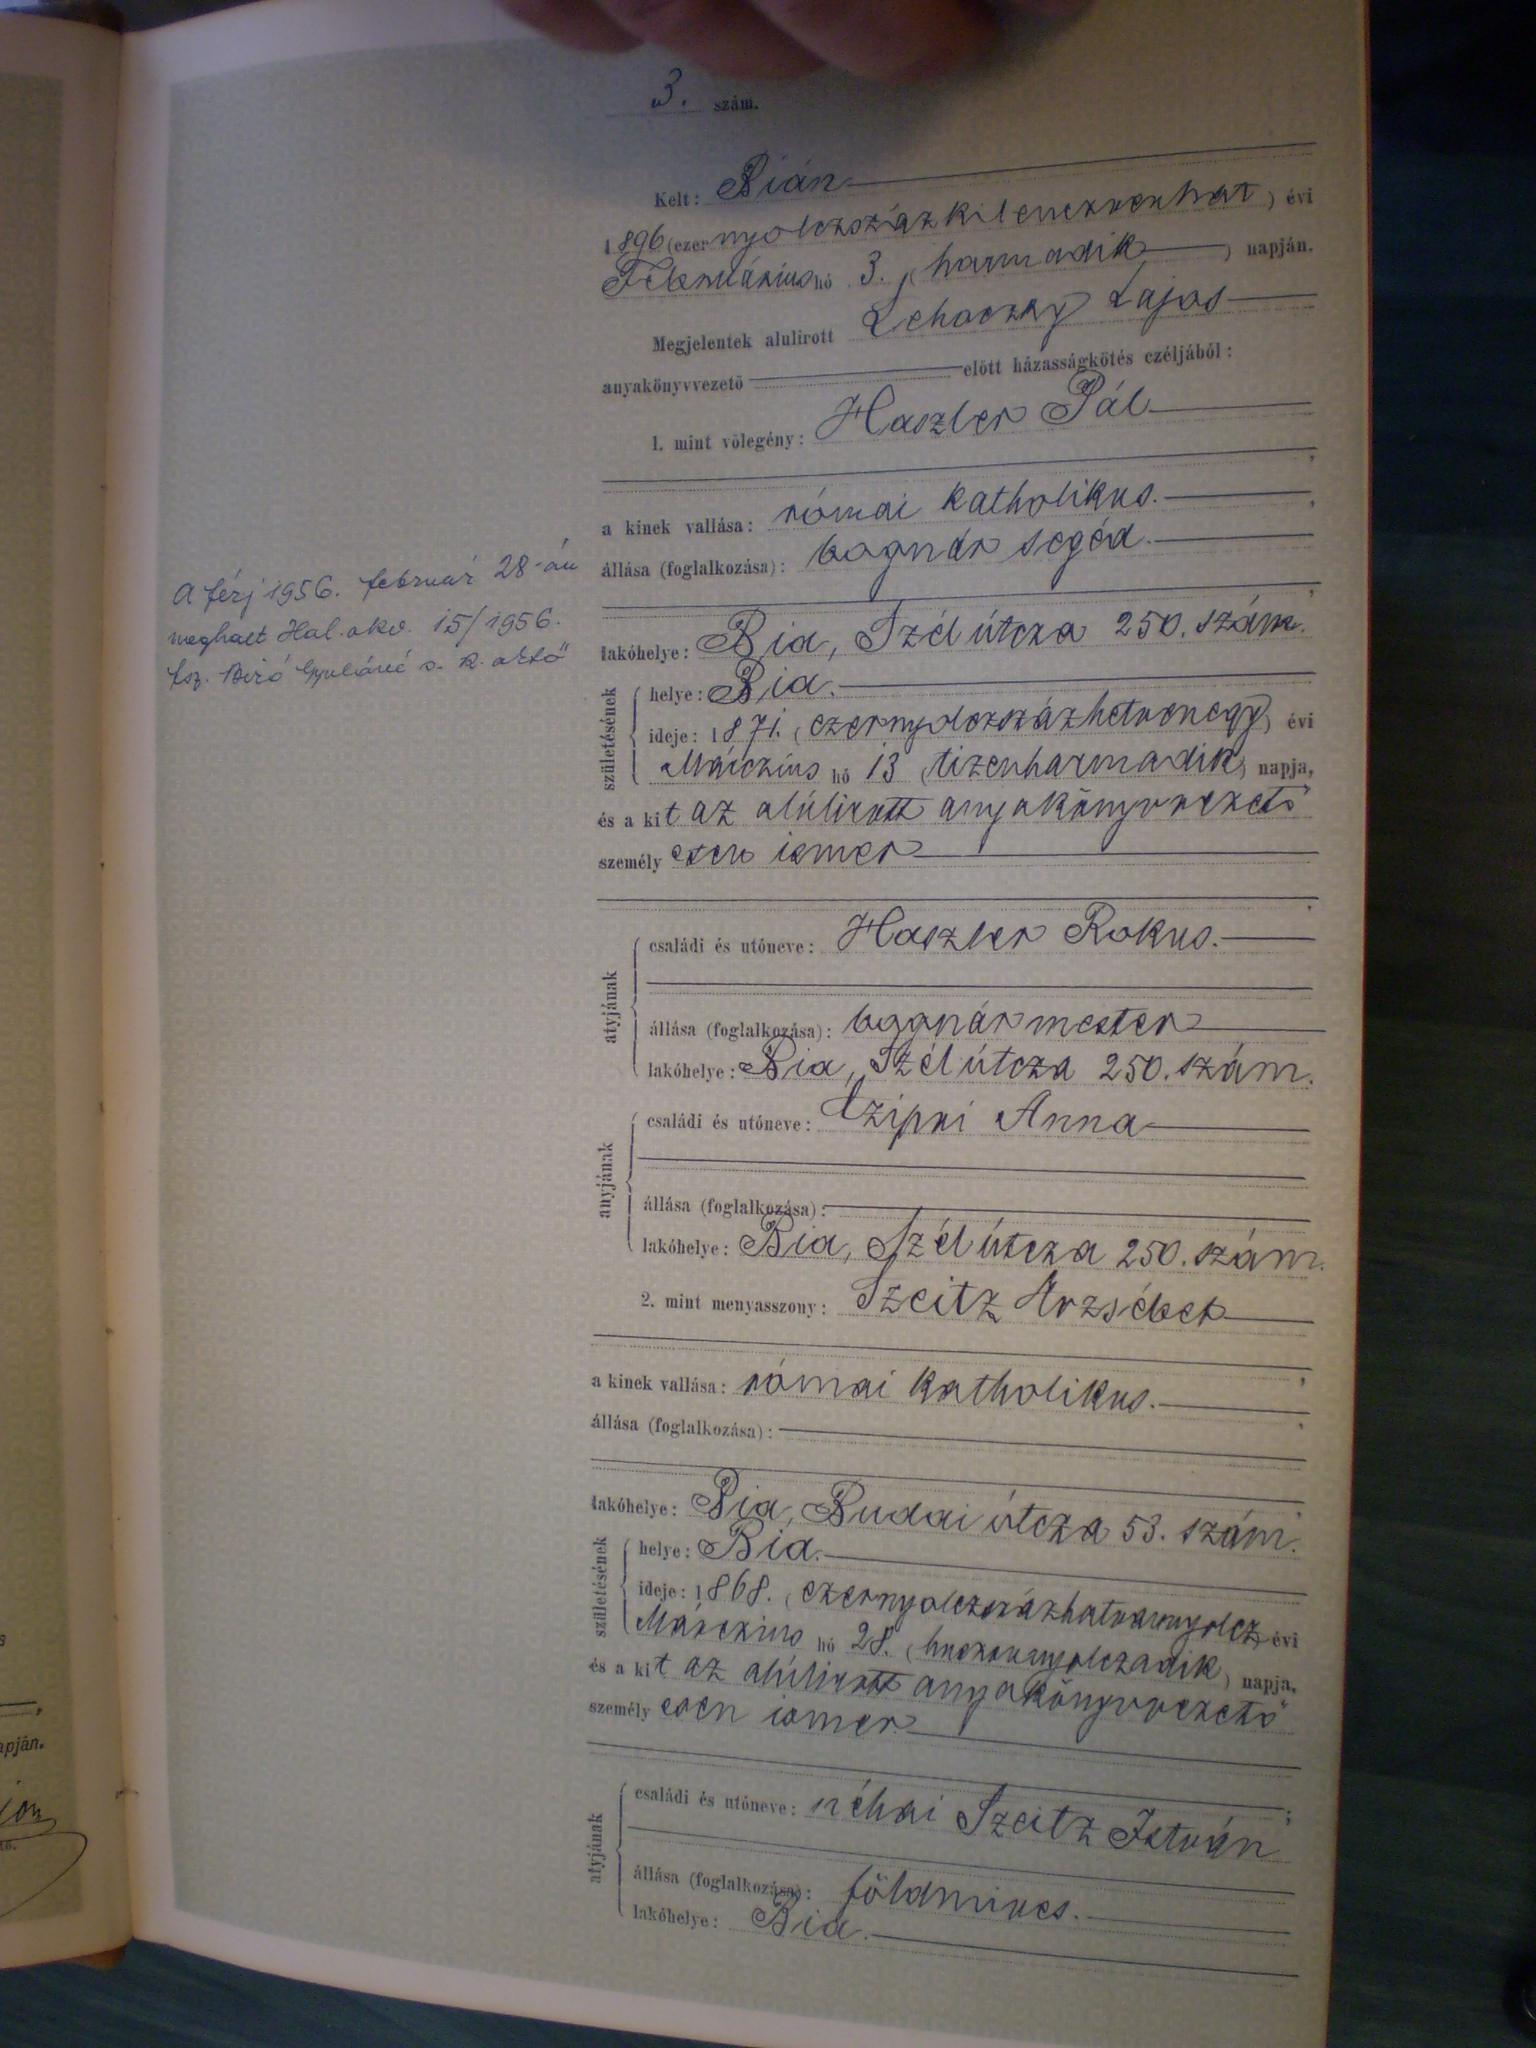 3. szám.
Kelt: Bián
1896 (ezernyolczszázkilenczvenhat) évi
Februárius hó 3. (harmadik) napján.
Megjelentek alulirott Lehoczky Lajos
anyakönyvvezető előtt házasságkötés czéljából:
1. mint vőlegény: Haszler Pál
a kinek vallása: római katholikus.
állása (foglalkozása): bognár segéd.
lakóhelye: Bia, Szél útcza 250. szám.
születésének
helye: Bia.
ideje: 1871. (ezernyolczszázhetvenegy) évi
Márczius hó 13 (tizenharmadik) napja,
és a kit az alúlirott anyakönyvvezető
személyesen ismer
A férj 1956. február 28-án
meghalt Hal. akv. 15/1956.
Biró Gyuláné s. k.
atyjának
családi és utóneve: Haszler Rokus.
állása (foglalkozása): bognármester
lakóhelye: Bia, Szél útcza 250. szám.
anyjának
családi és utóneve: Anna
állása (foglalkozása):
lakóhelye: Bia, Szél útcza 250. szám.
2. mint menyasszony: Szeitz Erzsébet
a kinek vallása: római katholikus.
állása (foglalkozása):
lakóhelye: Bia, Budai útcza 53. szám.
születésének
helye: Bia.
ideje: 1868. (ezernyolczszázhatvannyolcz) évi
Márczius hó 28. (huszonnyolczadik) napja,
és a kit az alúlirott anyakönyvvezető
személy esen ismer
atyjának
családi és utóneve: néhai Szeitz István
állása (foglalkozása): földmives.
lakóhelye: Bia.
apján.